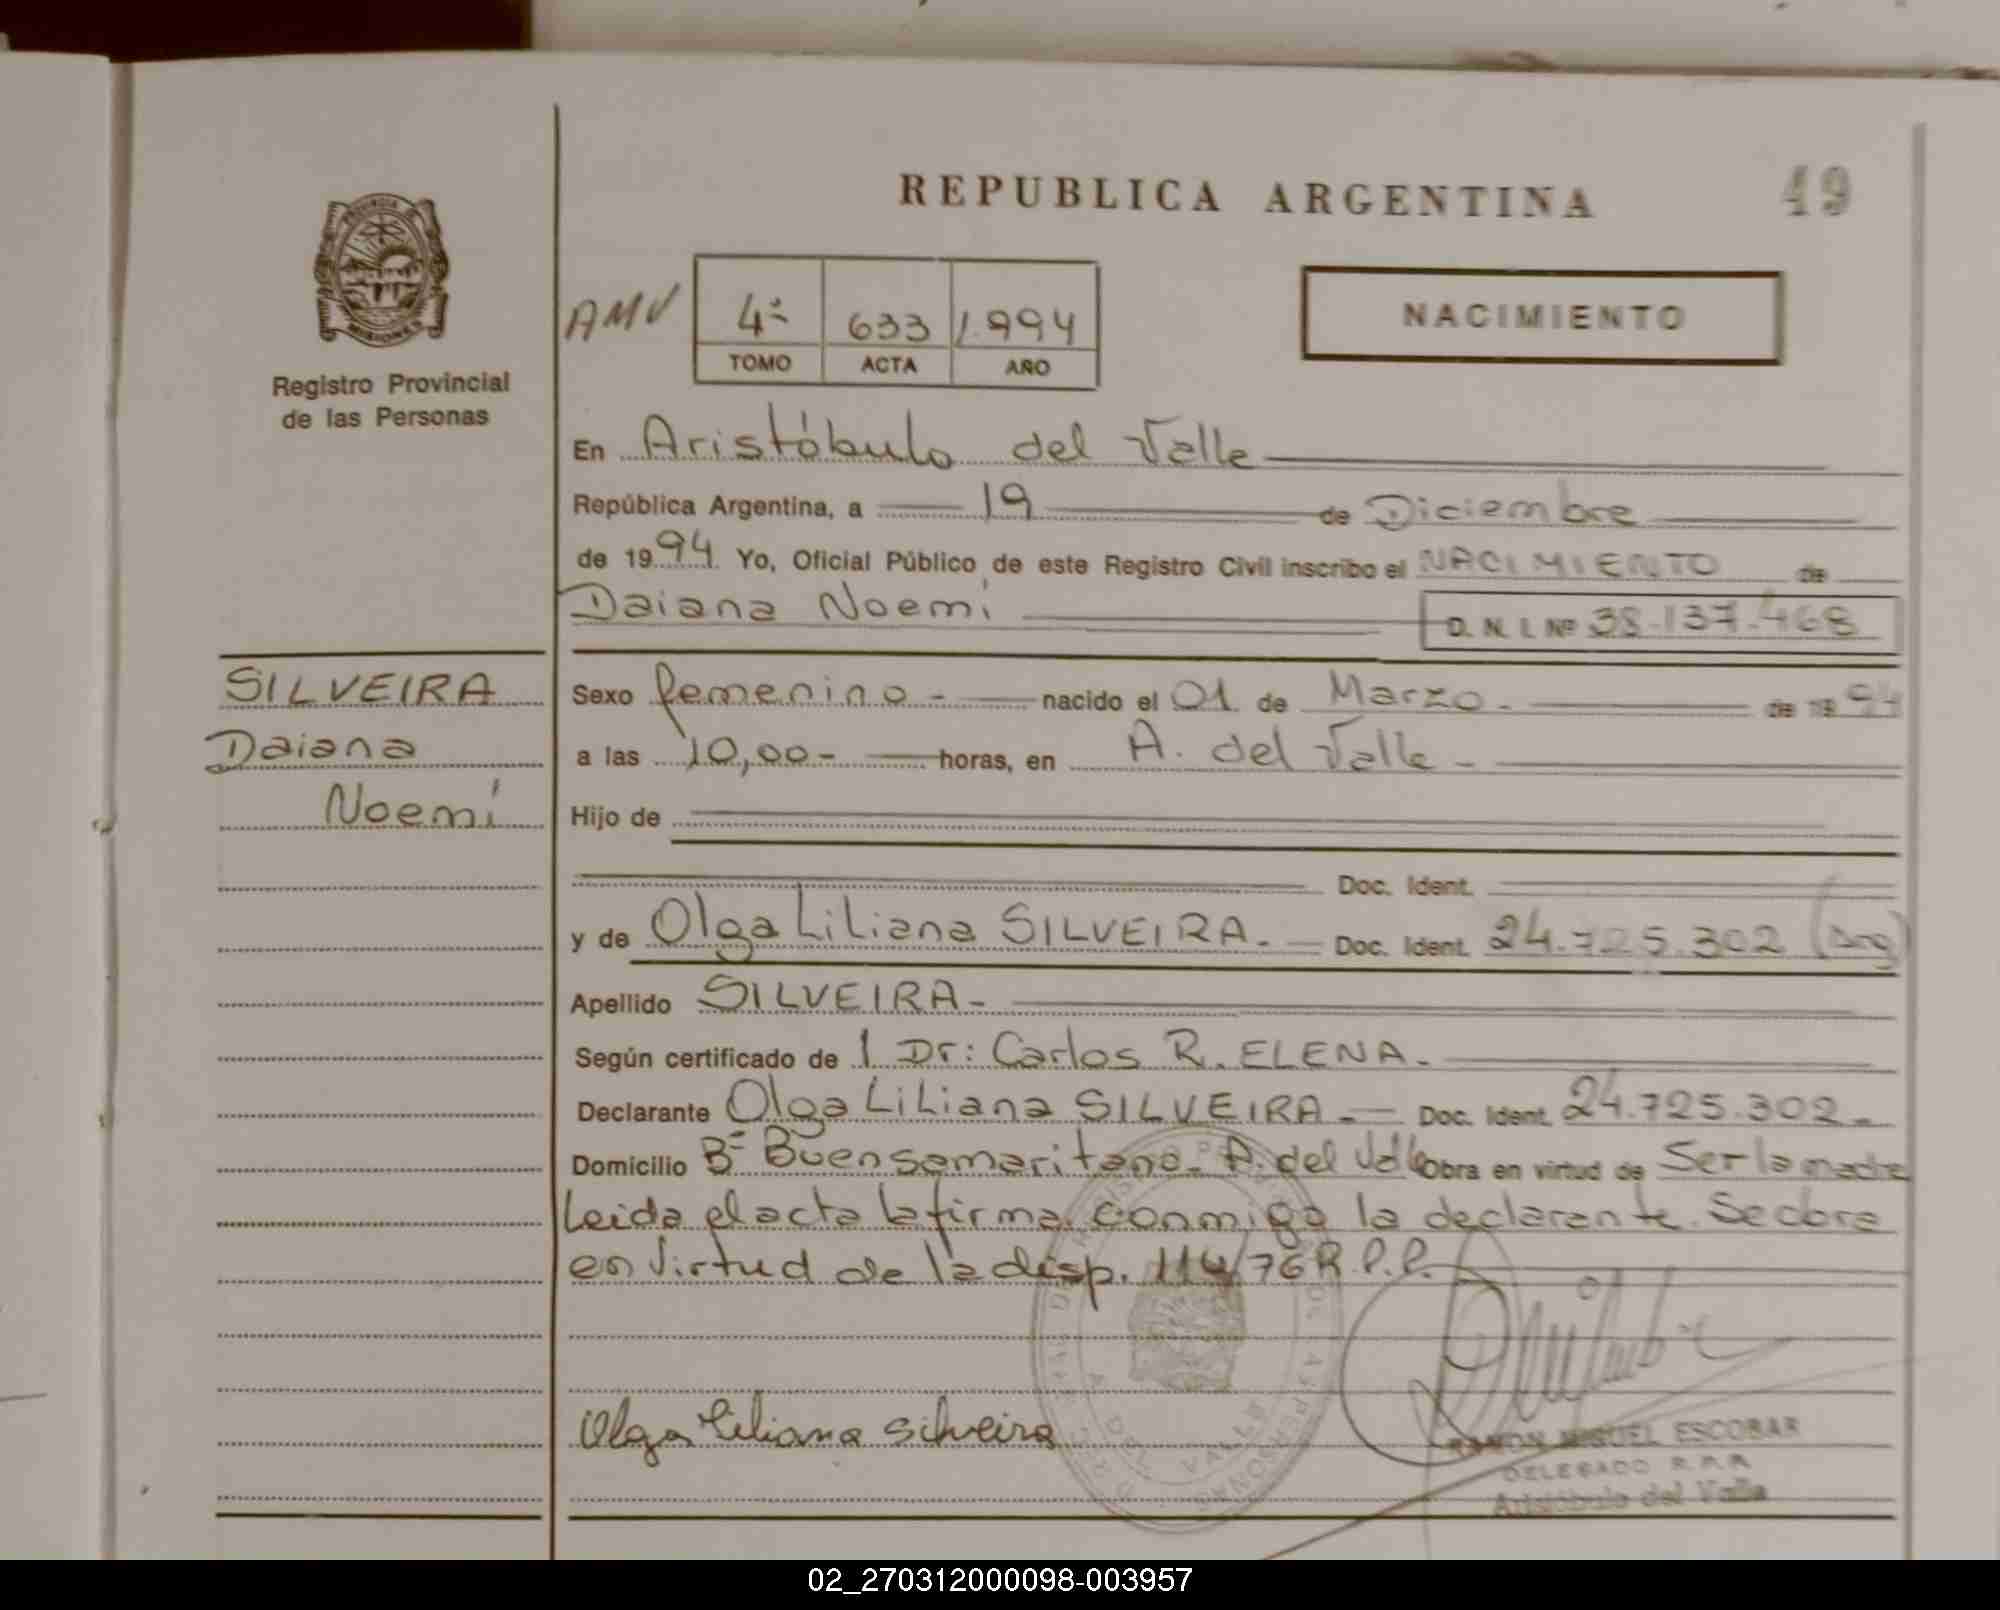 REPUBLICA ARGENTINA
49
PROVINCIA DE
MISIONES
Registro Provincial
de las Personas
AMV
4º 633 1.994
TOMO ACTA AÑO
NACIMIENTO
En Aristóbulo del Valle
República Argentina, a 19 de Diciembre
de 1994 Yo, Oficial Público de este Registro Civil inscribo el NACIMIENTO de
Daiana Noemí
D. N. I. Nº 38.137.468
SILVEIRA
Daiana
Noemí
Sexo femenino - nacido el 01 de Marzo - de 1994
a las 10,00 - horas, en A. del Valle -
Hijo de
Doc. Ident.
y de Olga Liliana SILVEIRA. - Doc. Ident. 24.725.302 (Arg)
Apellido SILVEIRA -
Según certificado de 1 Dr: Carlos R. ELENA -
Declarante Olga Liliana SILVEIRA - Doc. Ident. 24.725.302 -
Domicilio Bº Buensamaritano - A. del Valle Obra en virtud de Ser la madre
Leida el acta la firma conmigo la declarante. Se obra
en virtud de la disp. 114/76 R.P.P.
Olga Liliana Silveira
RAMON MIGUEL ESCOBAR
DELEGADO R.P.P.
Aristóbulo del Valle
02_270312000098-003957